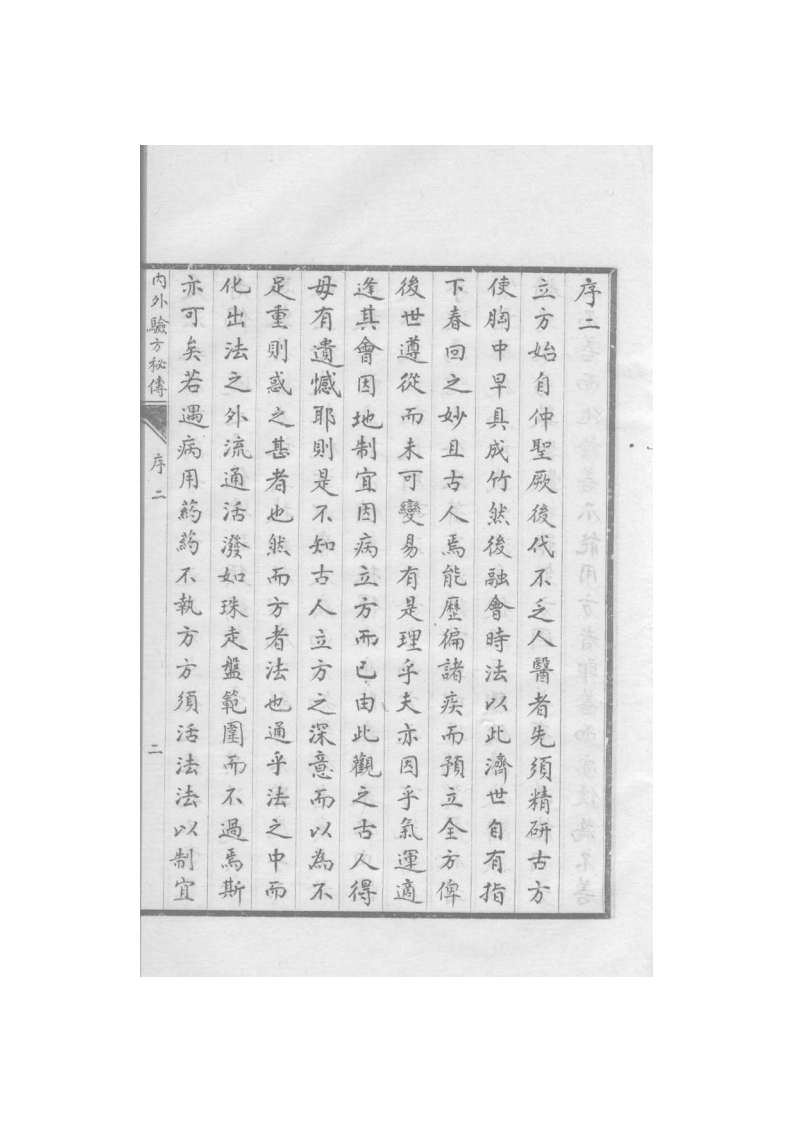 序二
立方始自仲聖厥後代不乏人醫者先須精研古方
使胸中早具成竹然後融會時法以此濟世自有指
下春回之妙且古人焉能歷徧諸疾而預立全方俾
後世遵從而未可變易有是理乎夫亦因乎氣運適
逢其會因地制宜因病立方而已由此觀之古人得
毋有遺憾耶則是不知古人立方之深意而以為不
足重則惑之甚者也然而方者法也通乎法之中而
化出法之外流通活潑如珠走盤範圍而不過焉斯
亦可矣若遇病用药药不執方方須活法法以制宜
內外驗方秘傳
序二
二